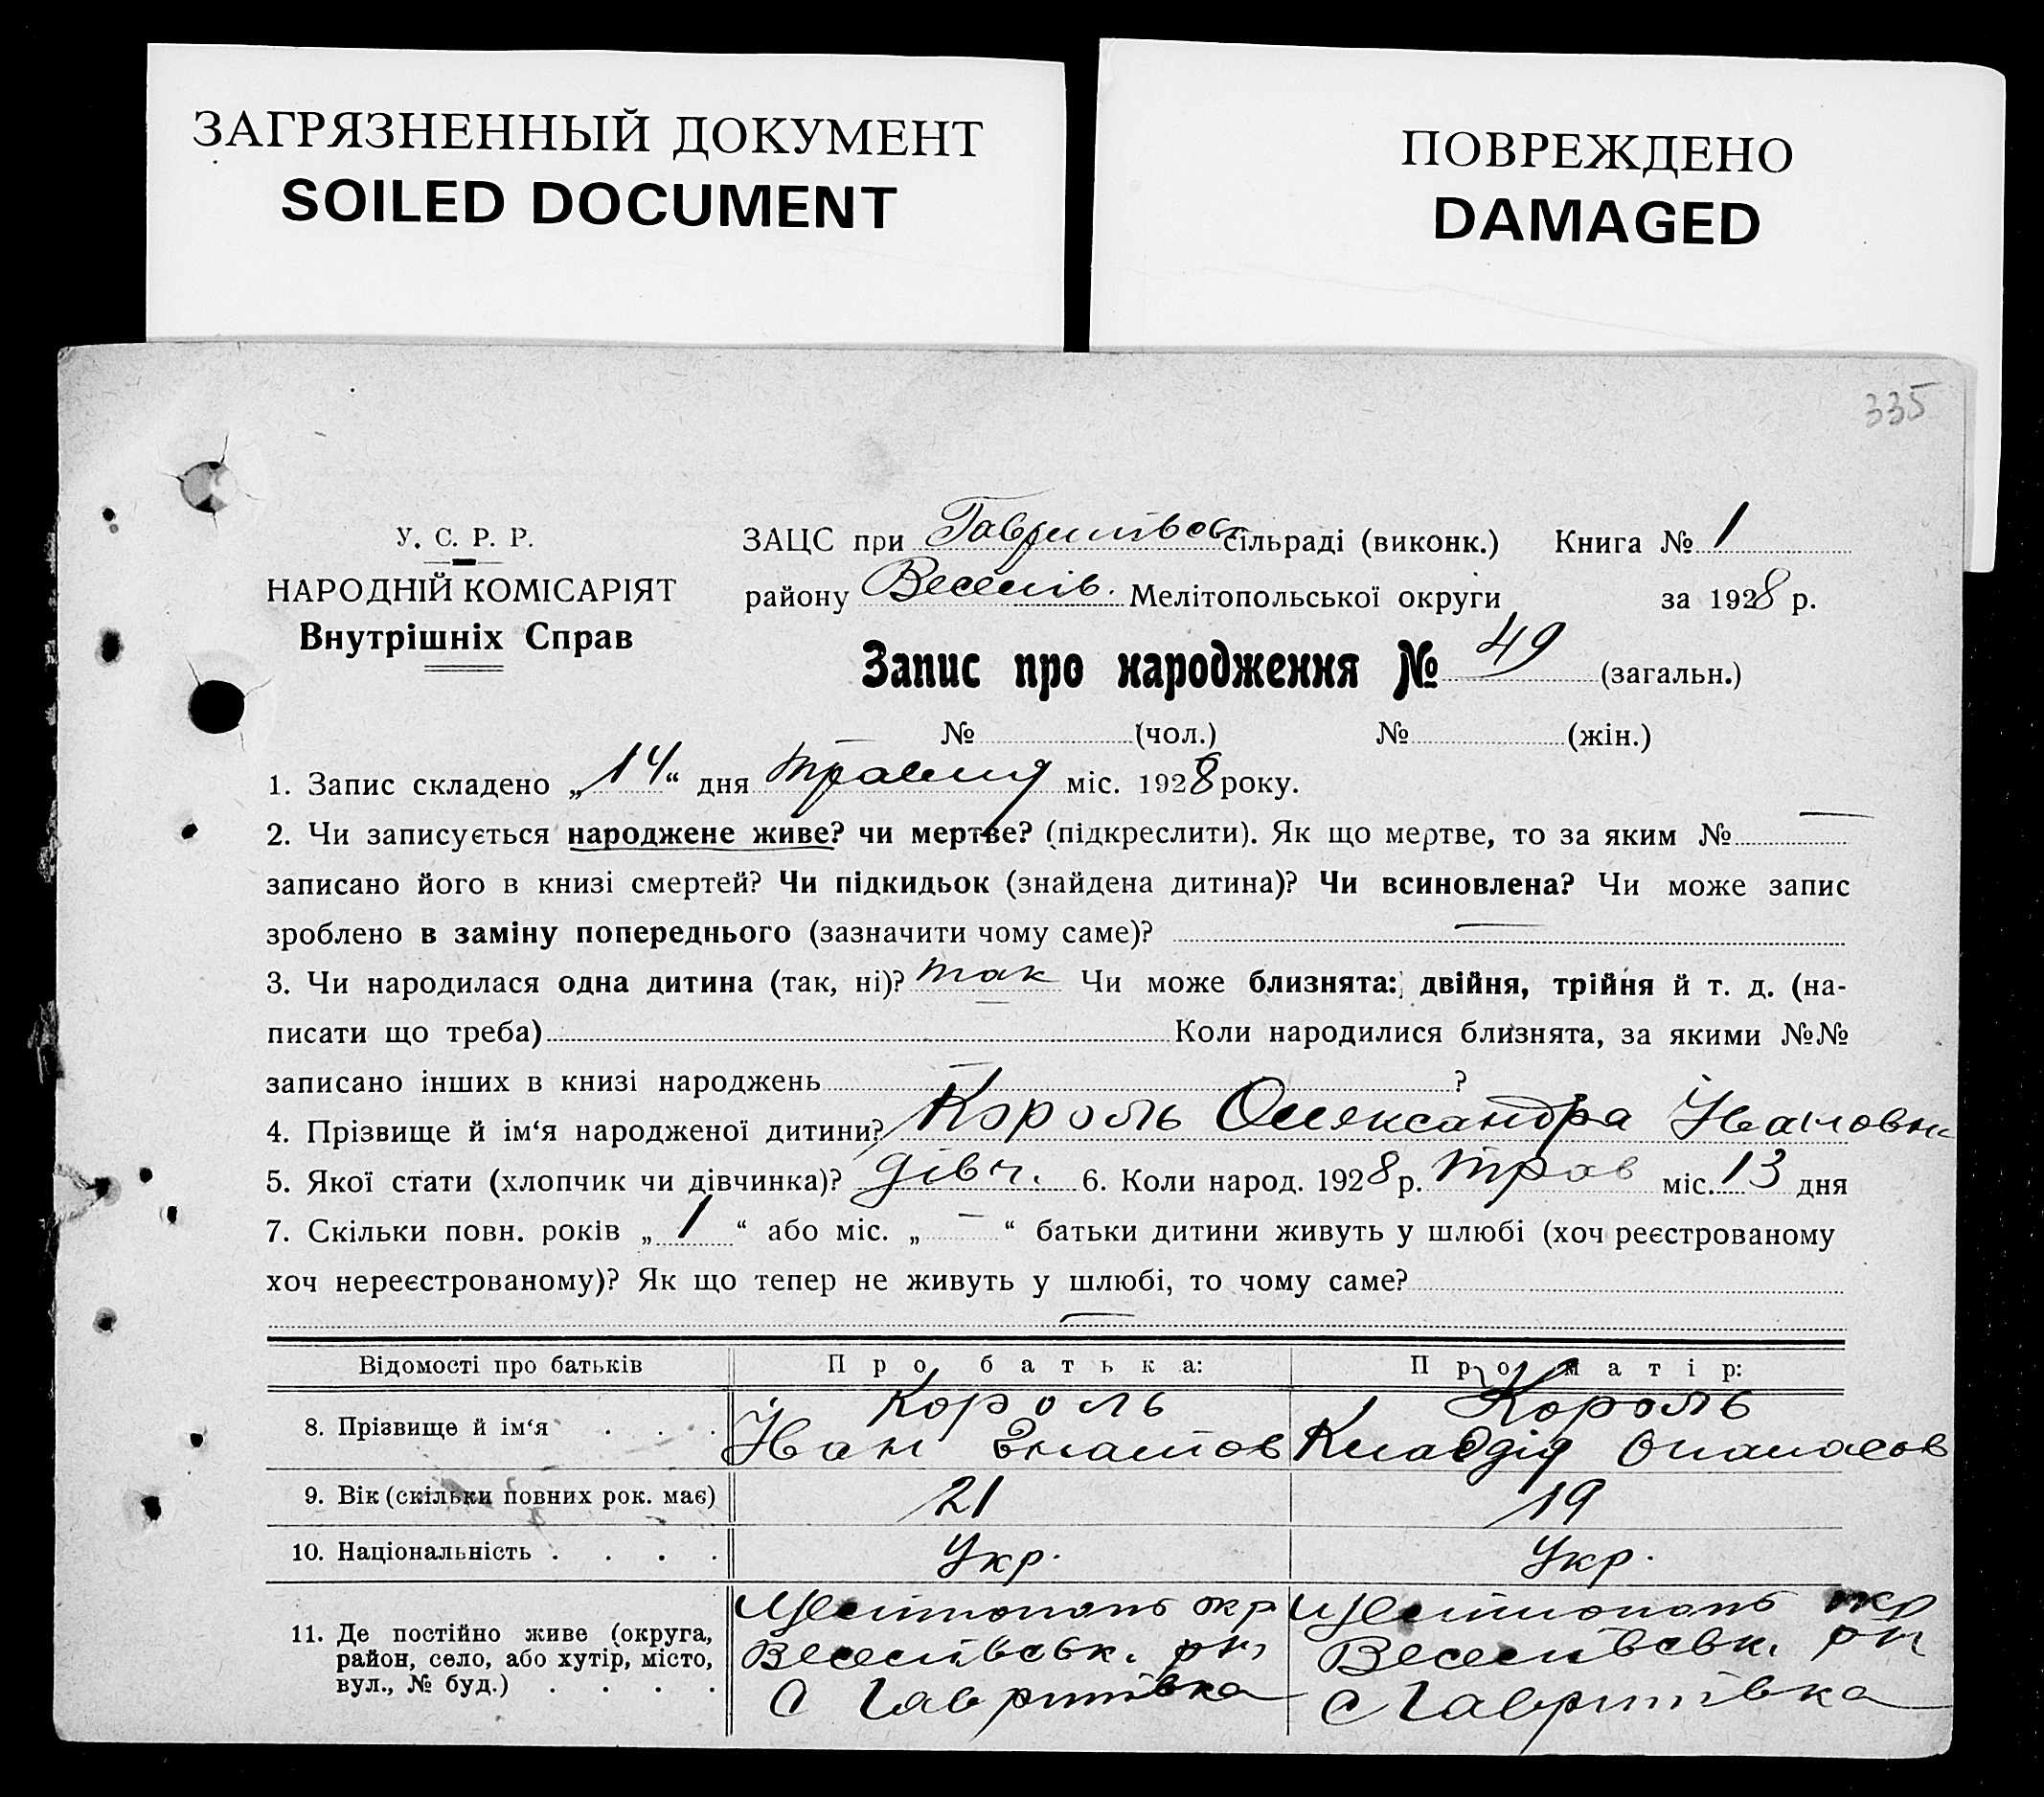 ЗАГРЯЗНЕННЫЙ ДОКУМЕНТ
SOILED DOCUMENT
ПОВРЕЖДЕНО
DAMAGED
335
У. С. Р. Р.
НАРОДНІЙ КОМІСАРІЯТ
Внутрішніх Справ
ЗАЦС при Гаврилівсь сільраді (виконк.) Книга № 1
району Веселів. Мелітопольської округи за 1928 р.
Запис про народження № 49 (загальн.)
№ (чол.) № (жін.)
1. Запис складено „14“ дня травня міс. 1928 року.
2. Чи записується народжене живе? чи мертве? (підкреслити). Як що мертве, то за яким № —
записано його в книзі смертей? Чи підкидьок (знайдена дитина)? Чи всиновлена? Чи може запис
зроблено в заміну попереднього (зазначити чому саме)? —
3. Чи народилася одна дитина (так, ні)? так Чи може близнята: двійня, трійня й т. д. (на-
писати що треба) Коли народилися близнята, за якими №№
записано інших в книзі народжень — ?
4. Прізвище й ім‘я народженої дитини? Король Олександра Івановн
5. Якої стати (хлопчик чи дівчинка)? дівч. 6. Коли народ. 1928 р. трав міс. 13 дня
7. Скільки повн. років „1“ або міс. „—“ батьки дитини живуть у шлюбі (хоч реєстрованому
хоч нереєстрованому)? Як що тепер не живуть у шлюбі, то чому саме?
—
Відомості про батьків Про батька: Про матір:
8. Прізвище й ім‘я . . . Король Іван Гнатов Король Клавдія Опанасов
9. Вік (скільки повних рок. має) 21 19
10. Національність . . . . Укр. Укр.
11. Де постійно живе (округа, Мелітополь окр Мелітополь окр
район, село, або хутір, місто, Веселівськ. рн, Веселівськ. рн
вул., № буд.) . . . . с Гаврилівка с Гаврилівка